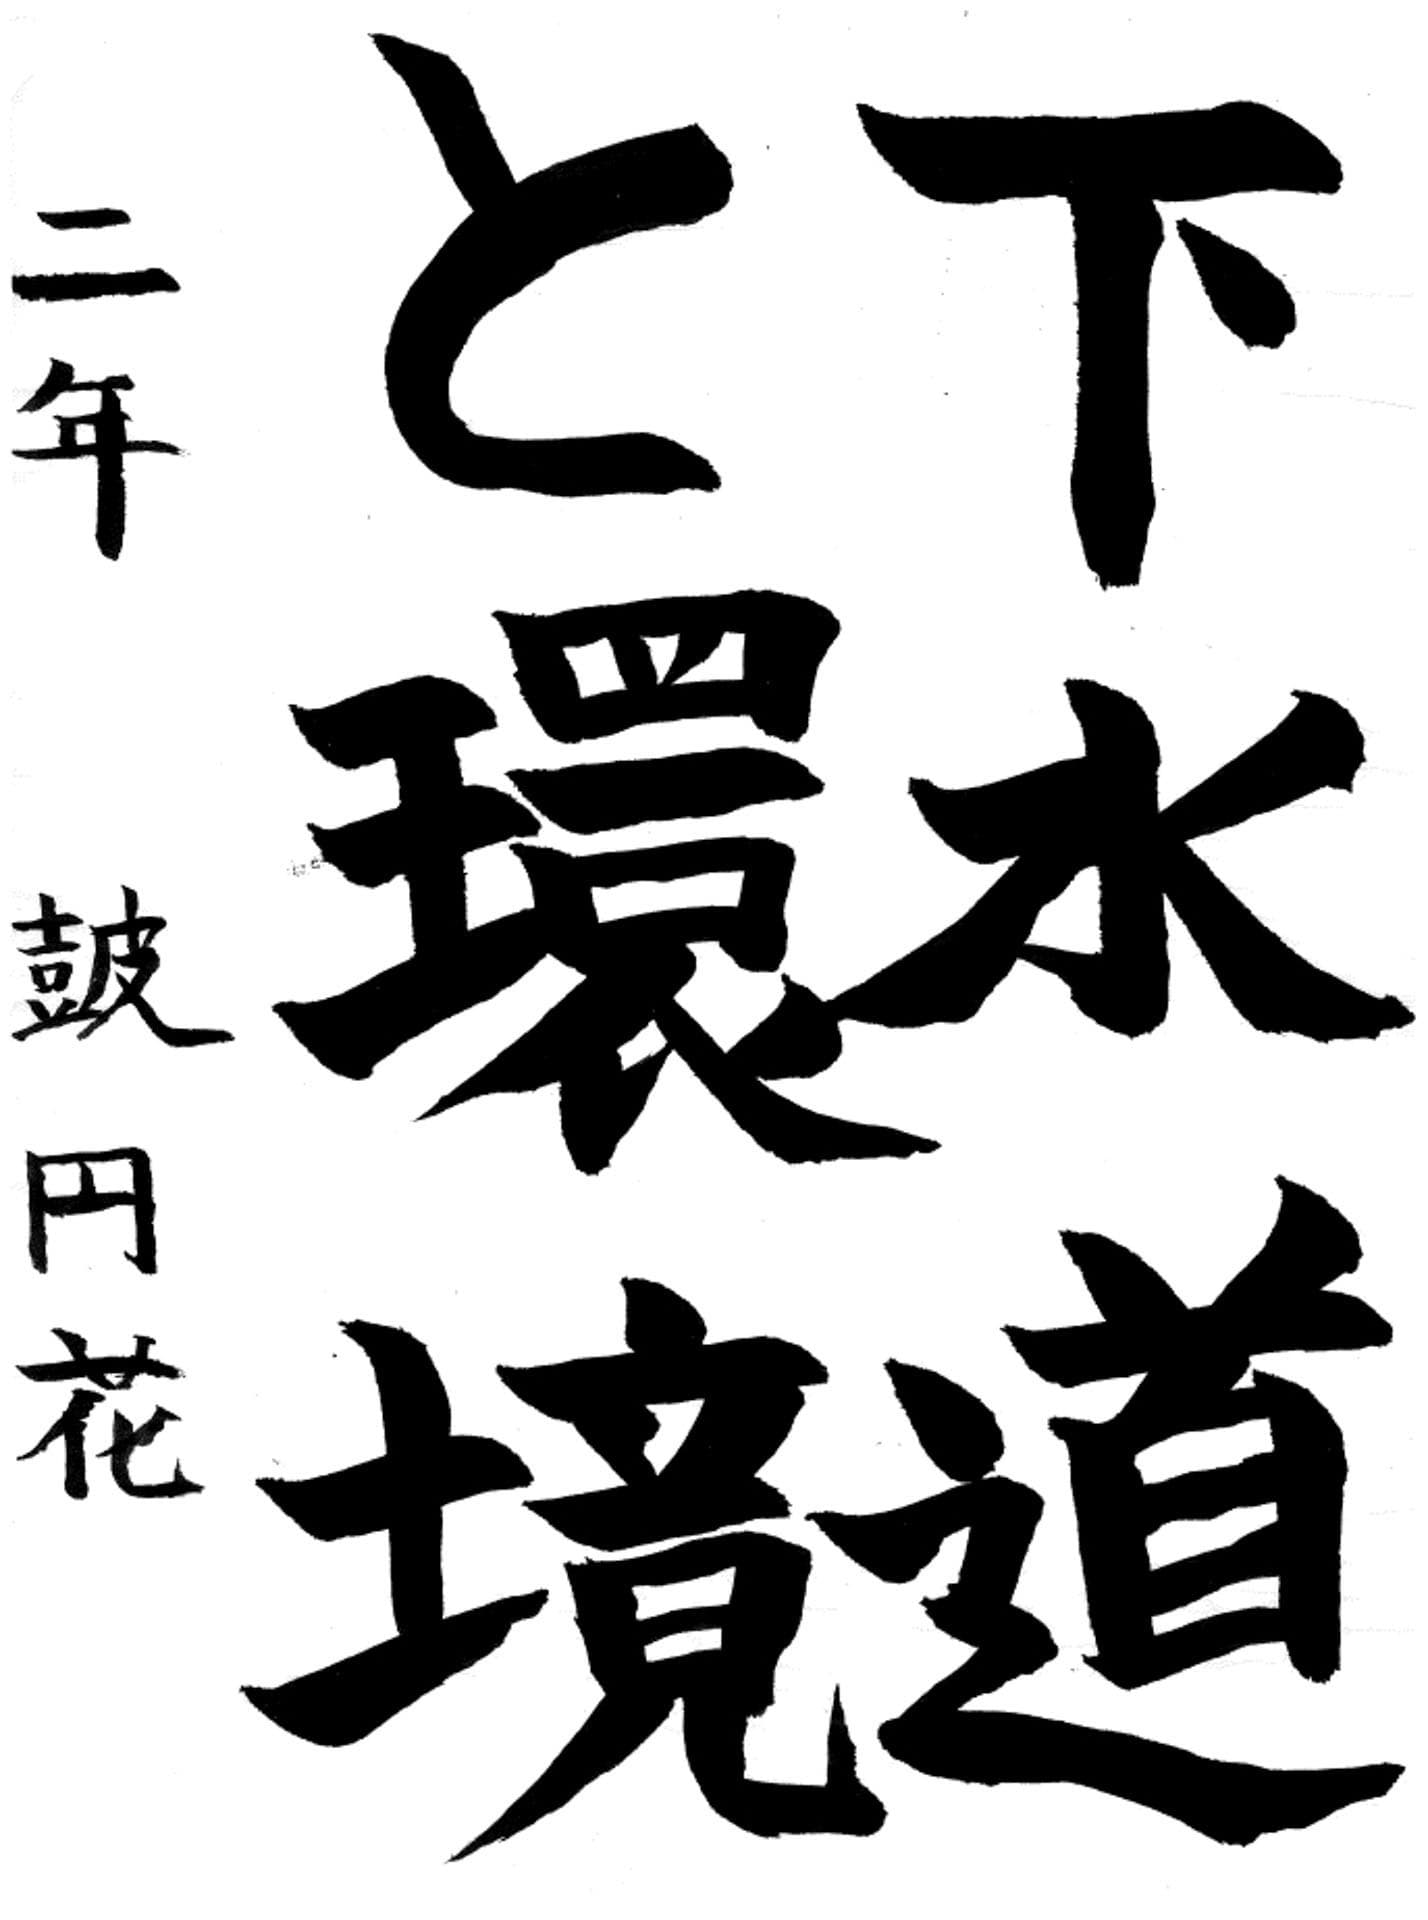 下水道
と環境
二年 皷円花